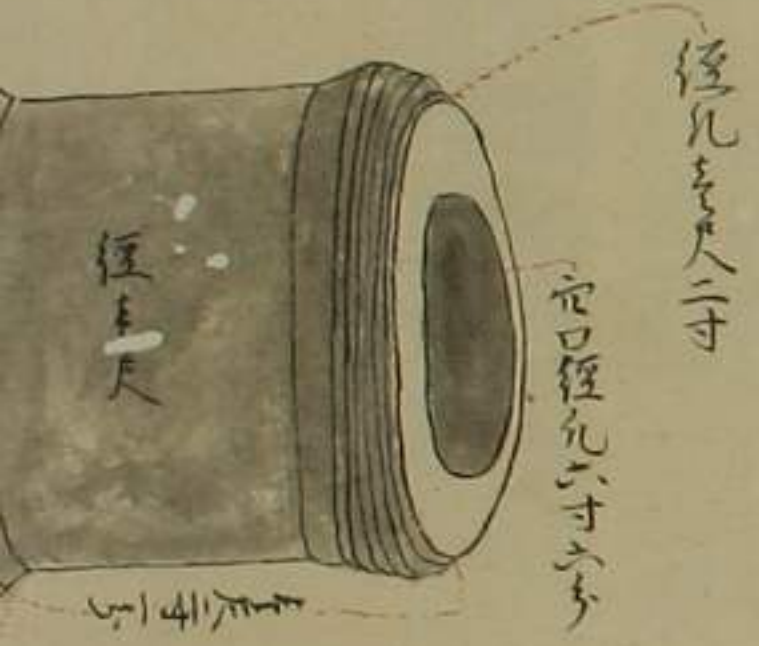 徑凡壱尺二寸
穴口徑凡六寸六分
徑壱尺